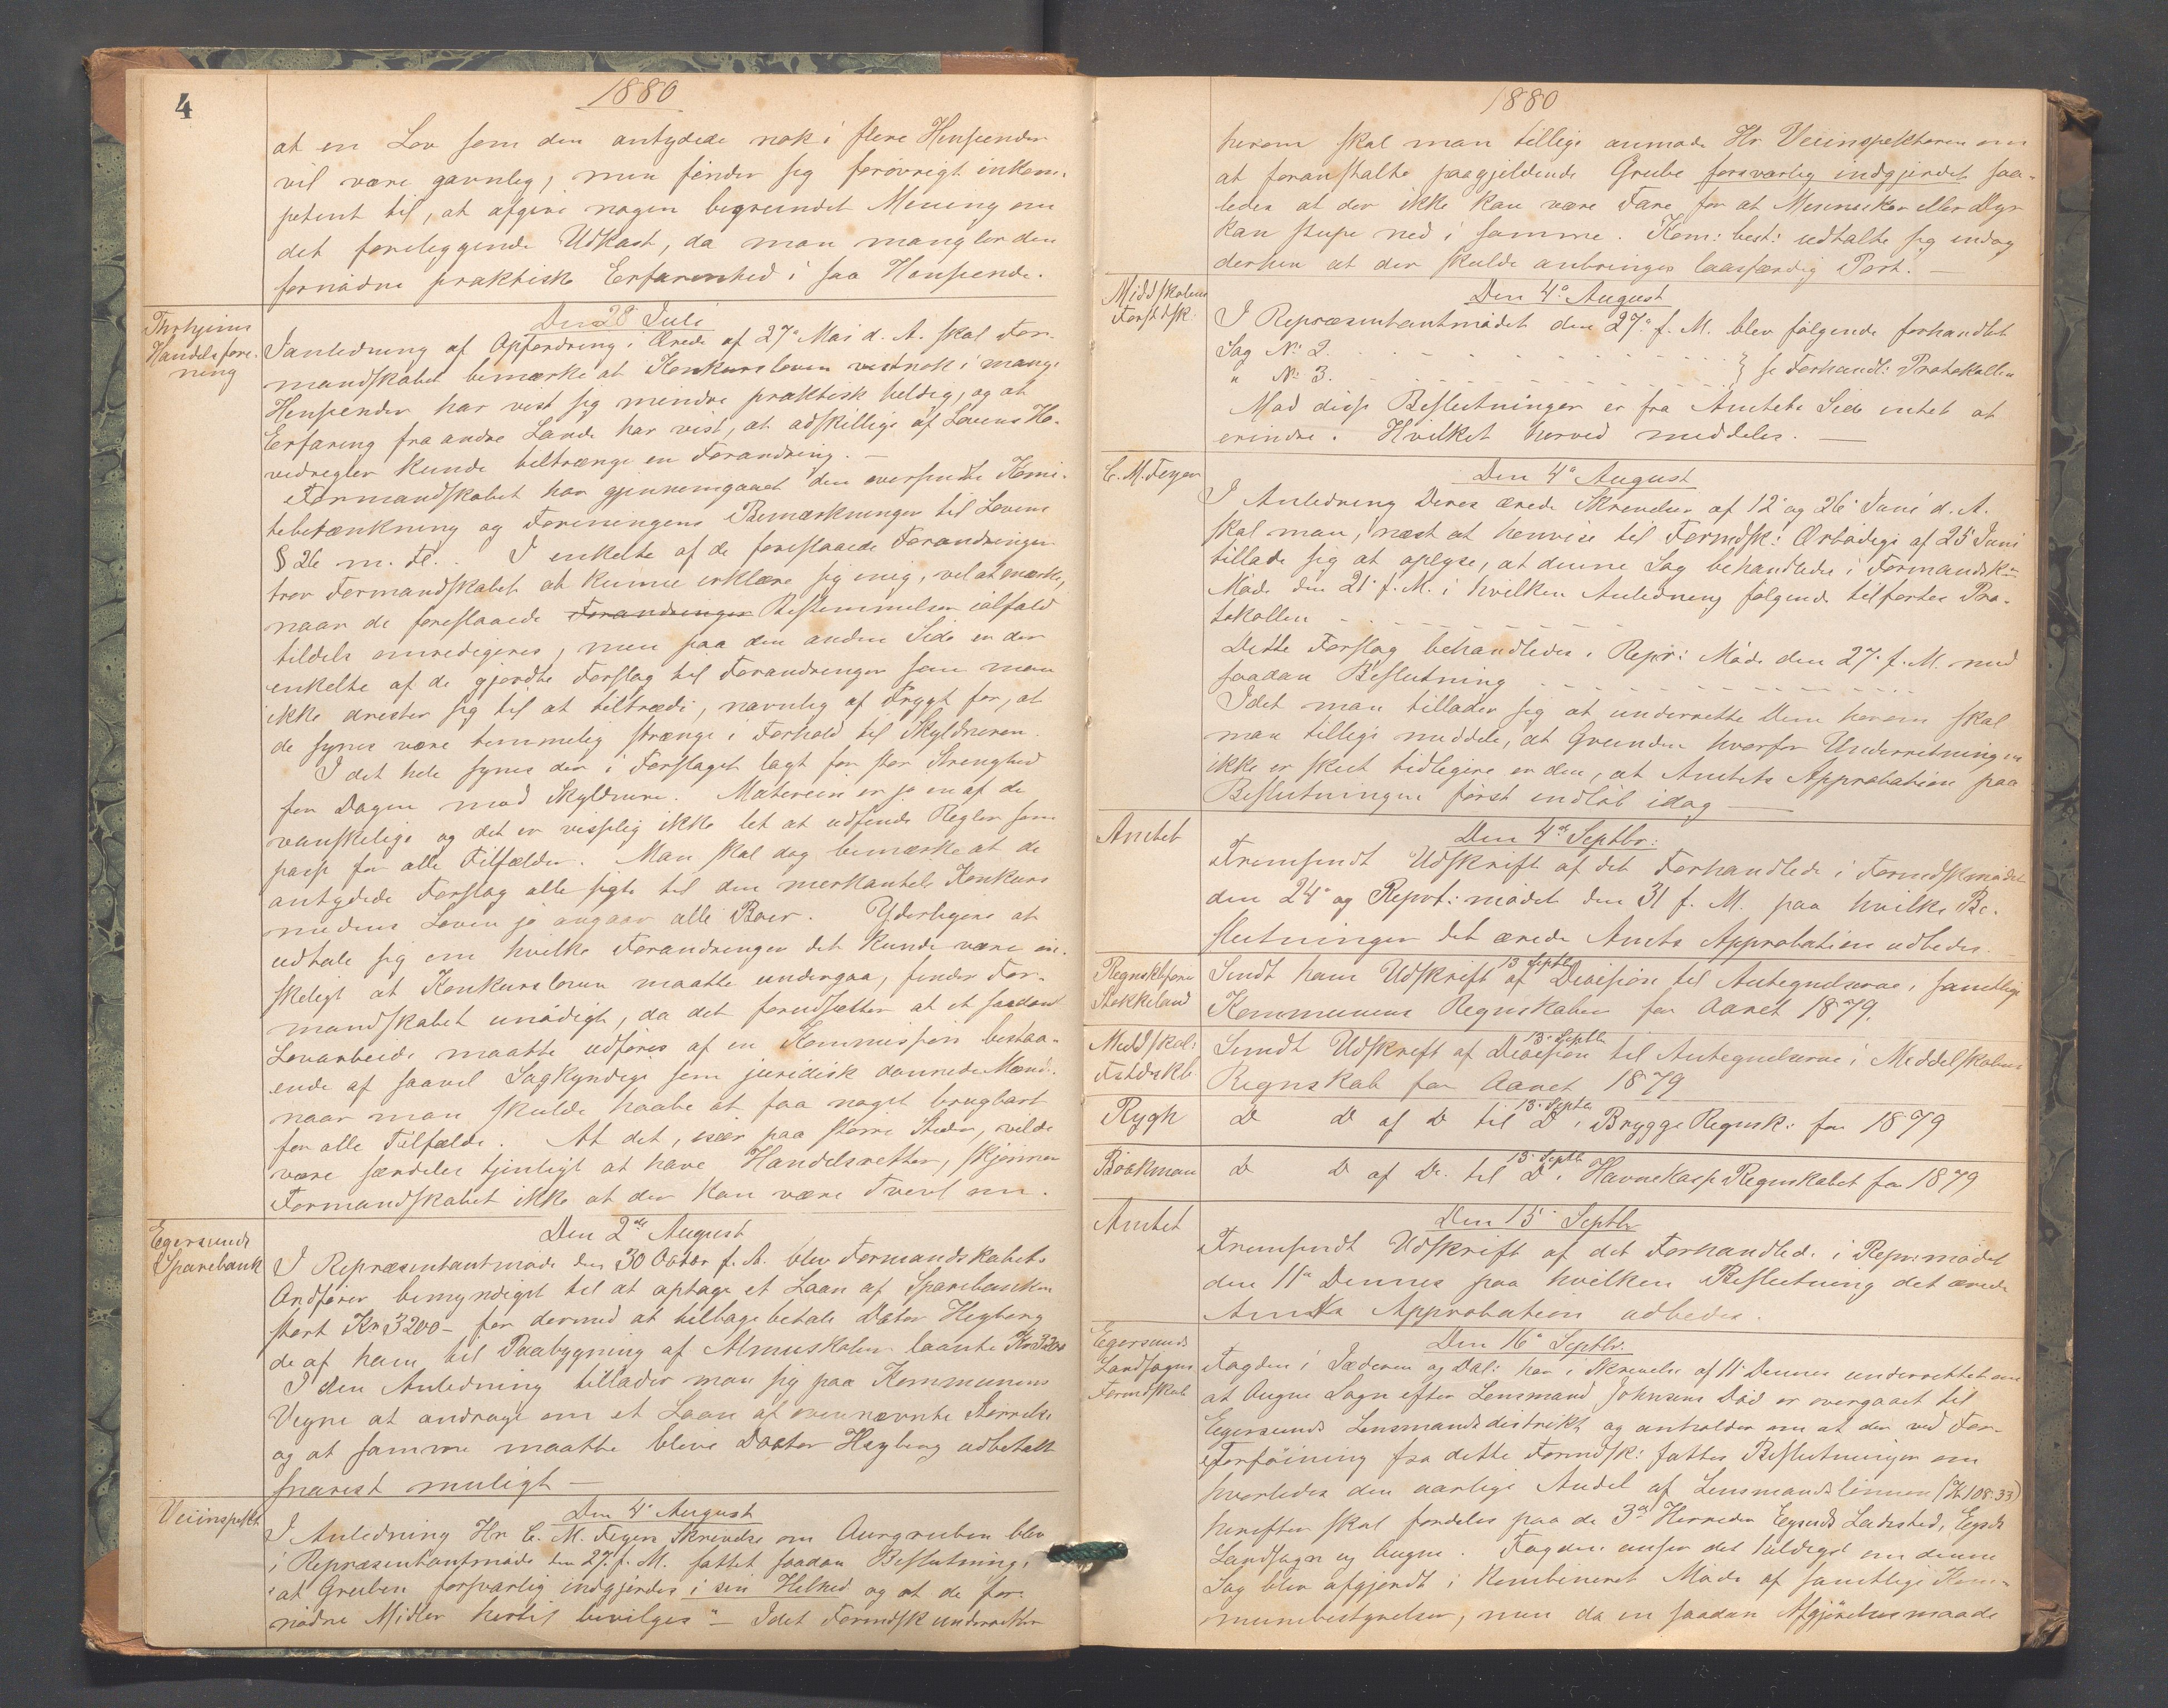 4
1880
at en Lov som den antydede nok i flere Henseender
vil være gavnlig, men finder sig forøvrigt inkom-
petent til, at afgive nogen begrundet Mening om
det foreliggende Udkast, da man mangler den
fornødne praktiske Erfarenhed i saa Henseende.
Thrhjems
Handelsfore-
ning
Den 28 Juli
I anledning af Opfordring i Ærede af 27de Mai d. A. skal For-
mandskabet bemærke at Konkursloven vistnok i mange
Henseender har vist sig mindre praktisk heldig, og at
Erfaring fra andre Lande har vist, at adskillige af Lovens Ho-
vedregler kunde tiltrænge en Forandring. —
Formandskabet har gjennemgaaet den oversendte Komi-
tebetænkning og Foreningens Bemærkninger til Lovens
§ 26 m. Fl. . I enkelte af de foreslaaede Forandringer
tror Formandskabet at kunne erklære sig enig, vel at mærke,
naar de foreslaaede Forandringer Bestemmelser ialfald
tildels omredigeres, men paa den anden Side er der
enkelte af de gjordte Forslag til Forandringer som man
ikke drister sig til at tiltræde, navnlig af Frygt for, at
de synes være temmelig strænge i Forhold til Skyldneren.
I det hele synes der i Forslaget lagt for stor Strenghed
for Dagen mod Skyldnere. Materien er jo en af de
vanskelige og det er visselig ikke let at udfinde Regler som
passe for alle Tilfælder. Man skal dog bemærke at de
antydede Forslag alle sigte til den merkantile Konkurs
medens Loven jo angaar alle Boer. Yderligere at
udtale sig om hvilke Forandringer det kunde være øn-
skeligt at Konkursloven maatte undergaa, finder For-
mandskabet unødigt, da det forudsætter at et saadant
Lovarbeide maatte udføres af en Kommission bestaa-
ende af saavel Sagkyndige som juridisk dannede Mænd.
naar man skulde haabe at faa noget brugbart
for alle Tilfælde. At det, især paa større Steder, vilde
være særdeles tjenligt at have Handelsretter, skjønner
Formandskabet ikke at der kan være Tvivl om.
Egersunds
Sparebank
Den 2de August
I Repræsentantmøde den 30 Octbr f. A. blev Formandskabets
Ordfører bemyndiget til at optage et Laan af Sparebanken
stort Kr 3200 – for dermed at tilbagebetale Doctor Heyberg
de af ham til Paabygning af Almuskolen laante Kr 3200
I den Anledning tillader man sig paa Kommunens
Vegne at andrage om et Laan af ovennævnte Størrelse
og at samme maatte blive Doctor Heyberg udbetalt
snarest muligt —
Veiinspekt.
Den 4de August
I Anledning Hr C. M. Feyers Skrivelse om Aurgruben blev
i Repræsentantmøde den 27. f. M. fattet saadan Beslutning:
"at Gruben forsvarlig indgjerdes i sin Helhed og at de for-
nødne Midler hertil bevilges" – Idet Formdsk underretter
1880
herom skal man tillige anmode Hr Veiinspektøren om
at foranstalte paagjeldende Grube forsvarlig indgjerdet saa-
ledes at der ikke kan være Fare for at Mennesker eller Dyr
kan stupe ned i samme. Kom: best: udtalte sig endog
derhen at der skulde anbringes laasfærdig Port. —
Middskolens
Forstdsk:
Den 4de August
I Repræsentantmødet den 27de f. M. blev følgende forhandlet
Sag No 2. - - - - -
" No 3. - - - - - } se Forhandl: Protokollen
Mod disse Beslutninger er fra Amtets Side intet at
erindre. Hvilket herved meddeles. —
C. M. Feyer
Den 4de August
I Anledning Deres ærede Skrivelser af 12te og 26de Juni d. A.
skal man, næst at henvise til Formdsk: Ærbødige af 25 Juni
tillade sig at oplyse, at denne Sag behandledes i Formandsk.
Møde den 21 f. M. i hvilken Anledning følgende tilførtes Pro-
tokollen - - - - -
Dette Forslag behandledes i Repr: Møde den 27. f. M. med
saadan Beslutning - - - - -
Idet man tillader sig at underrette Dem herom skal
man tillige meddele, at Grunden hvorfor Underretningen
ikke er skeet tidligere er den, at Amtets Approbation paa
Beslutningen først indløb idag —
Amtet
Den 4de Septbr:
Fremsendt Udskrift af det Forhandlede i Formdskmødet
den 24de og Reprt: mødet den 31 f. M. paa hvilke Be-
slutninger det ærede Amts Approbation udbedes.
Regnskbsfører
Stokkeland
13 Septbr
Sendt ham Udskrift af Decision til Antegnelserne i samtlige
Kommunens Regnskaber for Aaret 1879.
Middskol:
Fstdrskb
13. Septbr
Sendt Udskrift af Decision til Antegnelserne i Meddelskolens
Regnskab for Aaret 1879
Rygh
13. Septbr
D D af D til D i Brygge Regnsk: for 1879
Bookman
13. Septbr
D D af D. til D i Havnekasse Regnskabet for 1879
Amtet
Den 15 Septbr
Fremsendt Udskrift af det Forhandlede i Repr:mødet
den 11te Dennes paa hvilken Beslutning det ærede
Amts Approbation udbedes.
Egersunds
Landsogns
Formdskab
Den 16de Septbr.
Fogden i Jæderen og Dal: har i Skrivelse af 11te Dennes underrettet om
at Ougne Sogn efter Lensmand Johnsens Død er overgaaet til
Egersunds Lensmandsdistrikt og anholder om at der ved For-
Forføining fra dette Formdsk: fattes Beslutninger om
hvorledes den aarlige Andel af Lensmandslønnen (Kr 108.33)
herefter skal fordeles paa de 3de Herreder Egersunds Ladested, Egsds
Landsogn og Ougne. Fogden anser det heldigst om denne
Sag blev afgjordt i kombineret Møde af samtlige Kom-
munebestyrelser, men da en saadan Afgjørelsesmaade